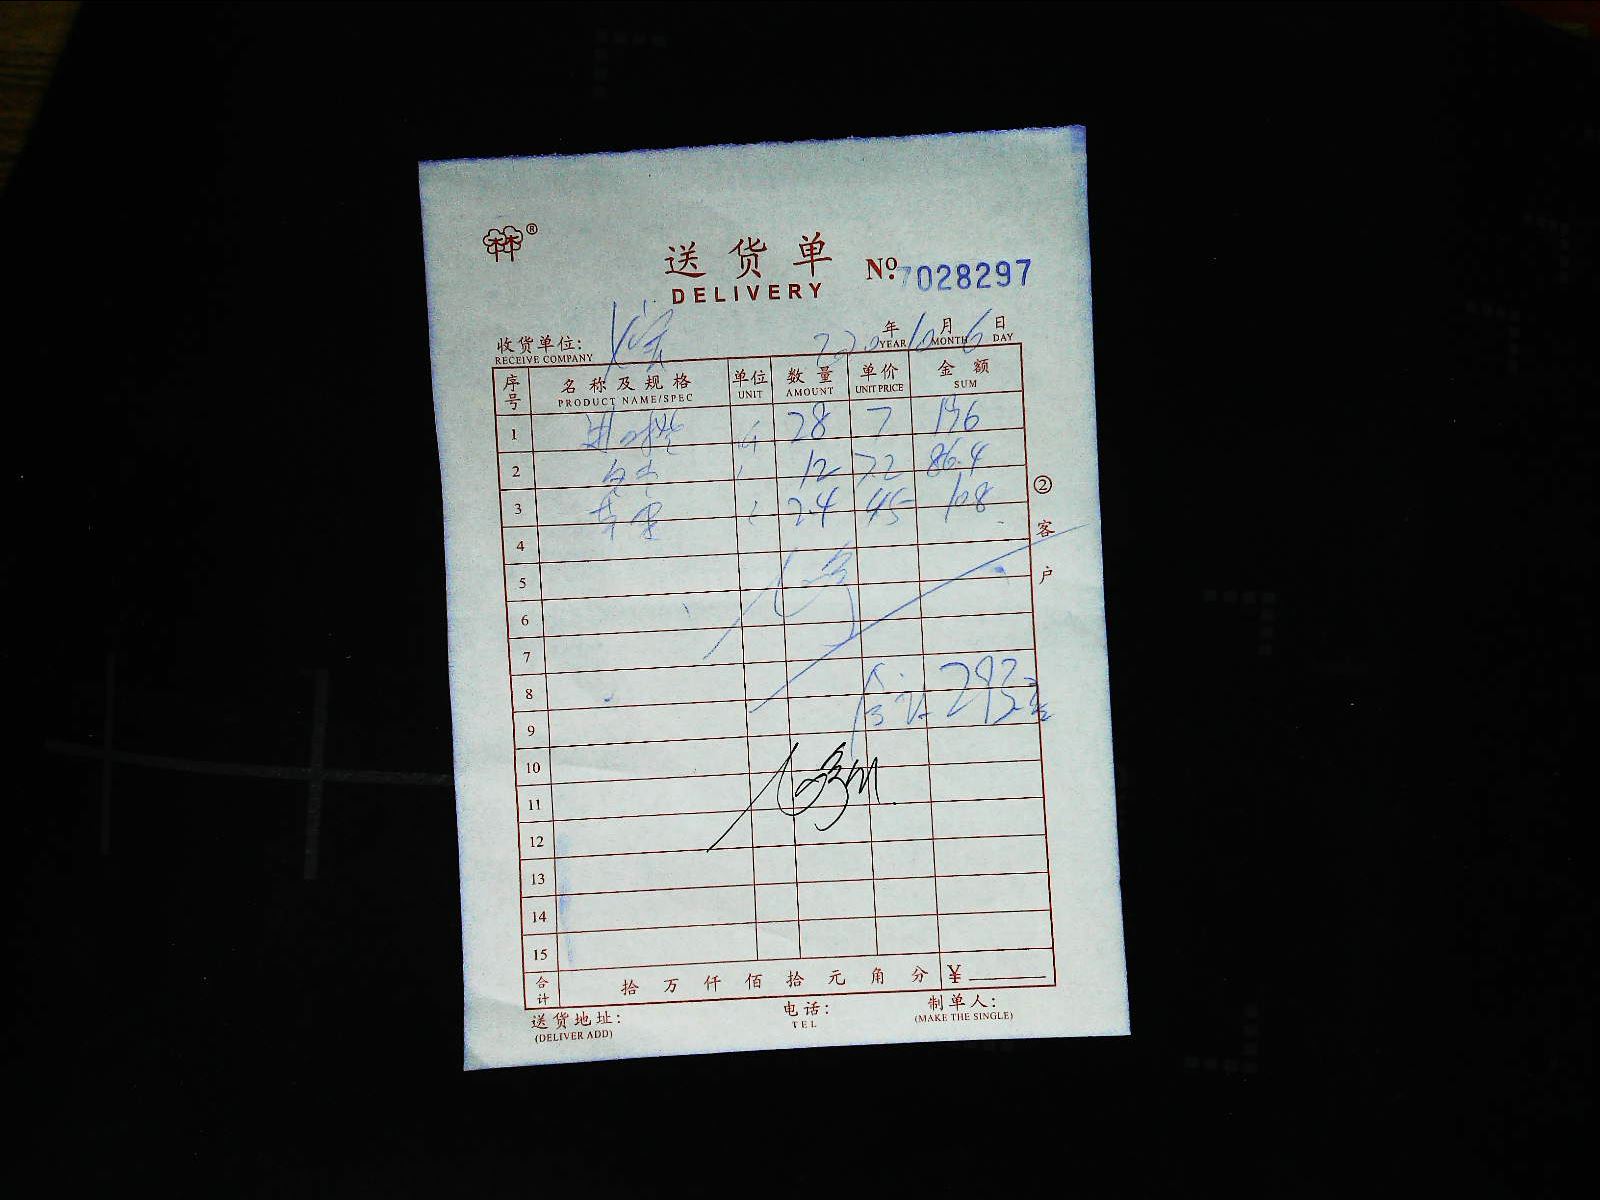 林®
送货单
DELIVERY
No. 7028297
收货单位:
RECEIVE COMPANY
年 10 月 6 日
YEAR MONTH DAY
序号 名称及规格 单位 数量 单价 金额
PRODUCT NAME/SPEC UNIT AMOUNT UNIT PRICE SUM
1 28 7 196
2 12 7.2 86.4
3 2.4 45 108
4
5
6
7
8
合计
9
10
11
12
13
14
15
合计 拾 万 仟 佰 拾 元 角 分 ¥
②客户
送货地址: 电话: 制单人:
(DELIVER ADD) TEL (MAKE THE SINGLE)